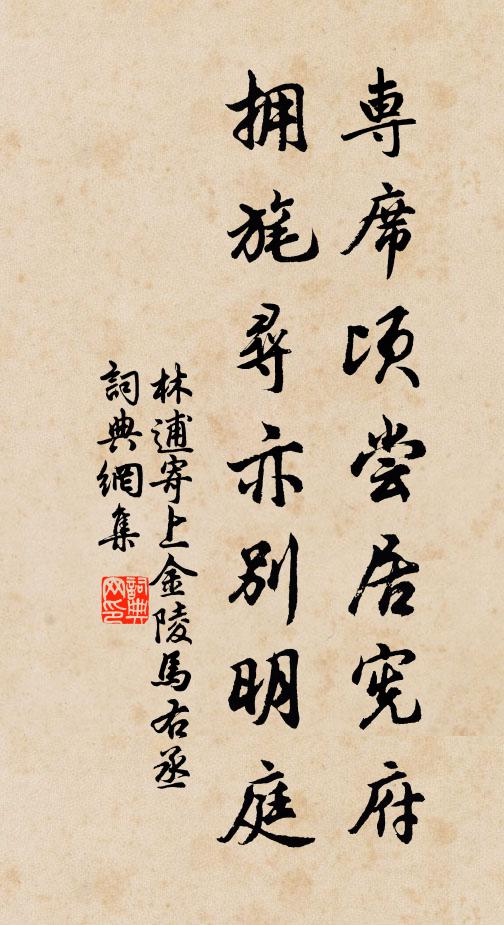 専席頃尝居宪府
拥旄尋亦别明庭
林逋寄上金陵馬右丞
詞典網集
詞典
网印